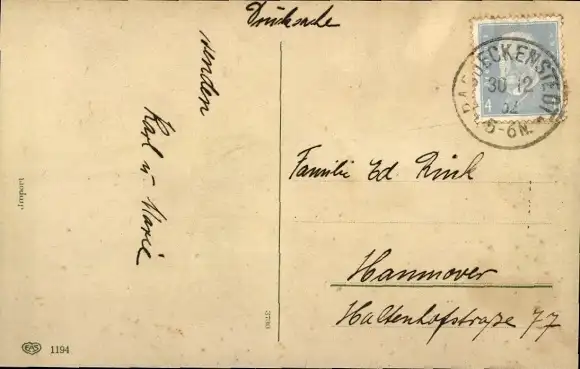 Drucksache
senden
Karl u Marie
Familie Ed. Rink
Hannover
Haltenhofstraße 77
4
30 12
5-6N.
3730
EAS 1194